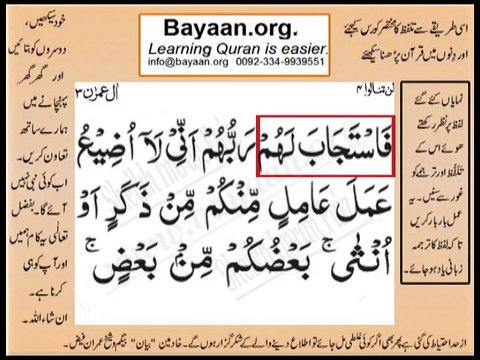 Bayaan.org.
Learning Quran is easier.
info@bayaan.org 0092-334-9939551
اسی طریقے سے تلفظ کا مختصر کورس کیجئے
اور دنوں میں قرآن پڑھنا سیکھئے
خود سیکھیں،
دوسروں کو بتائیں
اور گھر گھر
پہنچانے میں
ہمارے ساتھ
تعاون کریں۔
اب کوئی نبی نہیں
آئے گا۔ بفضل
تعالی یہ کام ہمیں
اور آپ کو ہی
کرنا ہے۔
ان شاءاللہ۔
لن تنالوا ۴
اٰل عمرٰن ۳
فَاسْتَجَابَ لَهُمْ رَبُّهُمْ اَنِّیْ لَاۤ اُضِیْعُ
عَمَلَ عَامِلٍ مِّنْكُمْ مِّنْ ذَكَرٍ اَوْ
اُنْثٰی ۚ بَعْضُكُمْ مِّنْۢ بَعْضٍ ۚ
نمایاں کئے گئے
لفظ پر نظر رکھتے
ھوئے اس کے
تلفظ اور ترجمے کو
غور سے سنیں۔ یہ
عمل بار بار کریں
تا کہ لفظ کا ترجمہ
زبانی یاد ہو جائے۔
از حد احتیاط کی گئی ہے پھر بھی اگر کوئی غلطی مل جائے تو اطلاع دینے والے کے شکر گزار ہوں گے۔ خادمین "بیان" بیگم و شیخ عمران فیض۔